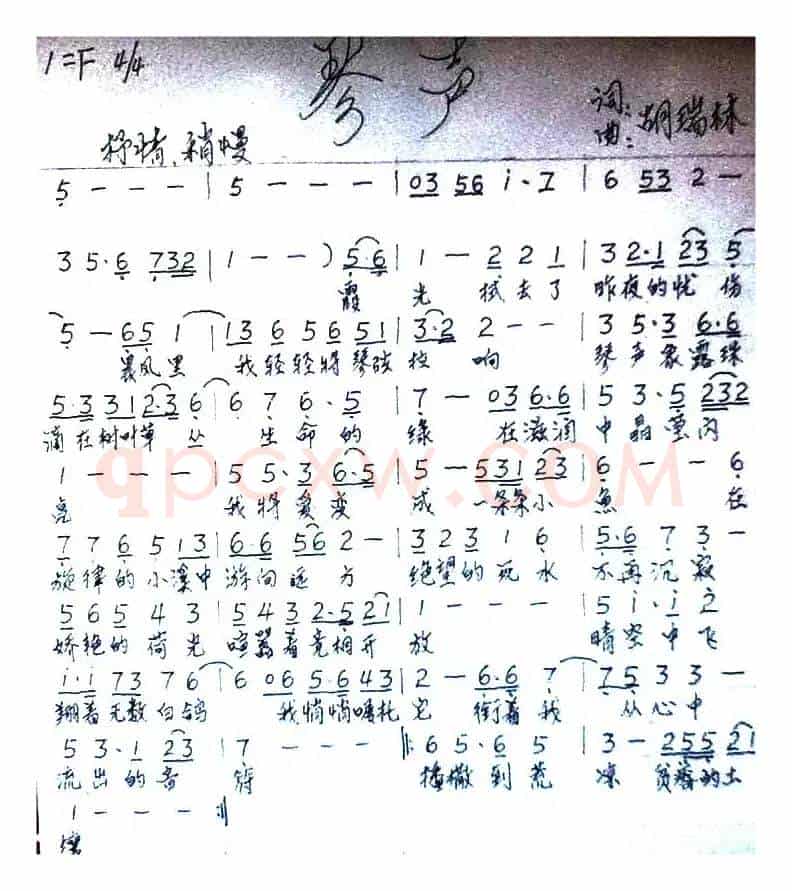 琴声
1=F 4/4
词:
曲: 胡瑞林
抒情、稍慢
5 - - - | 5 - - - | 03 56 i·7 | 6 53 2 -
3 5·6 732 | 1 - - ) 5·6 | 1 - 2 2 1 | 3 2·1 23 5
霞 光 拭去了 昨夜的忧 伤
5 - 65 1 | 13 6 56 51 | 3·2 2 - - | 3 5·3 6·6
晨风里 我轻轻将琴弦 拨 响 琴声象露珠
5·3 31 2·3 6 | 6 7 6·5 | 7 - 03 6·6 | 5 3·5 232
滴在树叶草 丛 生命的 绿 在滋润 中晶莹闪
1 - - - | 5 5·3 6·5 | 5 - 531 23 | 6 - - 6
亮 我将爱变 成 一条条小 鱼 在
qpcxw.COM
7 7 6 5 13 | 6·6 56 2 - | 3 2 3 1 6 | 5·6 7 3 -
旋律的小溪中 游向远 方 绝望的死水 不再沉寂
5 6 5 4 3 | 5 4 3 2·5 21 | 1 - - - | 5 i·i 2
娇艳的荷光 喧嚣着竞相开 放 晴空中飞
i·i 73 76 | 6 06 5·6 43 | 2 - 6·6 7 | 75 3 3 -
翔着无数白鸽 我悄悄嘱托 它 衔着我 从心中
5 3·1 23 | 7 - - - |: 6 5·6 5 | 3 - 255 21
流出的音 符 播撒到荒 凉 贫瘠的土
1 - - - :|
壤